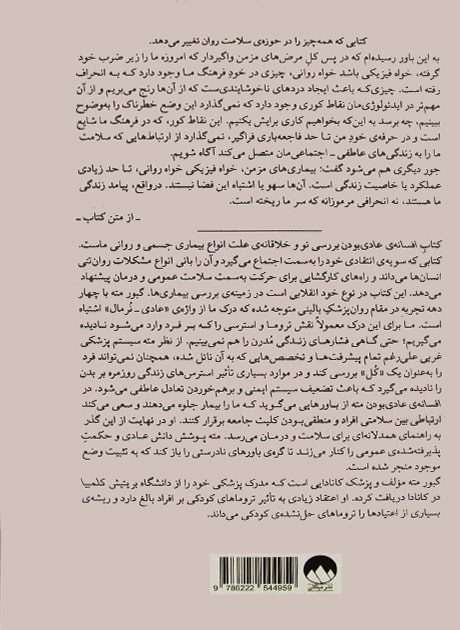 کتابی که همه‌چیز را در حوزه‌ی سلامت روان تغییر می‌دهد.
به این باور رسیده‌ام که در پس کل مرض‌های مزمن واگیرداری که امروزه ما را زیر ضرب خود
گرفته، خواه فیزیکی باشد خواه روانی، چیزی در خودِ فرهنگ ما وجود دارد که به انحراف
رفته است. چیزی‌که باعث ایجاد دردهای ناخوشایندی‌ست که از آن‌ها رنج می‌بریم و از آن
مهم‌تر در ایدئولوژی‌مان نقاط کوری وجود دارد که نمی‌گذارد این وضع خطرناک را به‌وضوح
ببینیم، چه برسد به این‌که بخواهیم کاری برایش بکنیم. این نقاط کور، که در فرهنگ ما شایع
است و در حرفه‌ی خودِ من تا حد فاجعه‌باری فراگیر، نمی‌گذارد از ارتباط‌هایی که سلامت
ما را به زندگی‌های عاطفی ـ اجتماعی‌مان متصل می‌کند آگاه شویم.
جور دیگری هم می‌شود گفت: بیماری‌های مزمن، خواه فیزیکی خواه روانی، تا حد زیادی
عملکرد یا خاصیت زندگی است. آن‌ها سهو یا اشتباه این فضا نیستند. درواقع، پیامد زندگی
ما هستند، نه انحرافی مرموزانه که سر ما ریخته است.
ـ از متن کتاب ـ
کتابِ افسانه‌ی عادی‌بودن بررسی نو و خلاقانه‌ی علت انواع بیماری جسمی و روانی ماست.
کتابی که سویه‌ی انتقادی خود را به‌سمت اجتماع می‌گیرد و آن را بانی انواع مشکلات روان‌تنی
انسان‌ها می‌داند و راه‌های کارگشایی برای حرکت به‌سمت سلامت عمومی و درمان پیشنهاد
می‌دهد. این کتاب در نوع خود انقلابی است در زمینه‌ی بررسی بیماری‌ها. گبور مته با چهار
دهه تجربه در مقام روان‌پزشکِ بالینی متوجه شده که درک ما از واژه‌ی «عادی ـ نُرمال» اشتباه
است. ما برای این درک معمولاً نقش تروما و استرسی را که بر فرد وارد می‌شود نادیده
می‌گیریم؛ حتی گاهی فشارهای زندگی مدرن را هم نمی‌بینیم. از نظر مته سیستم پزشکی
غربی علی‌رغم تمام پیشرفت‌ها و تخصص‌هایی که به آن نائل شده، همچنان نمی‌تواند فرد
را به‌عنوان یک «کُل» بررسی کند و در موارد بسیاری تأثیر استرس‌های زندگی روزمره بر بدن
را نادیده می‌گیرد که باعث تضعیف سیستم ایمنی و برهم‌خوردن تعادل عاطفی می‌شود. در
افسانه‌ی عادی‌بودن مته از باورهایی می‌گوید که ما را بیمار جلوه می‌دهند و سعی می‌کند
ارتباطی بین سلامتی افراد و منطقی‌بودن کلیت جامعه برقرار کنند. او در نهایت از این گذر
به راهنمای همدلانه‌ای برای سلامت و درمان می‌رسد. مته پوشش دانش عادی و حکمتِ
پذیرفته‌شده‌ی عمومی را کنار می‌زند تا گره‌ی باورهای نادرستی را باز کند که به تثبیت وضع
موجود منجر شده است.
گبور مته مؤلف و پزشک کانادایی است که مدرک پزشکی خود را از دانشگاه بریتیش کلمبیا
در کانادا دریافت کرده. او اعتقاد زیادی به تأثیر تروماهای کودکی بر افراد بالغ دارد و ریشه‌ی
بسیاری از اعتیادها را تروماهای حل‌نشده‌ی کودکی می‌داند.
نشر میلکان
9 786222 544959